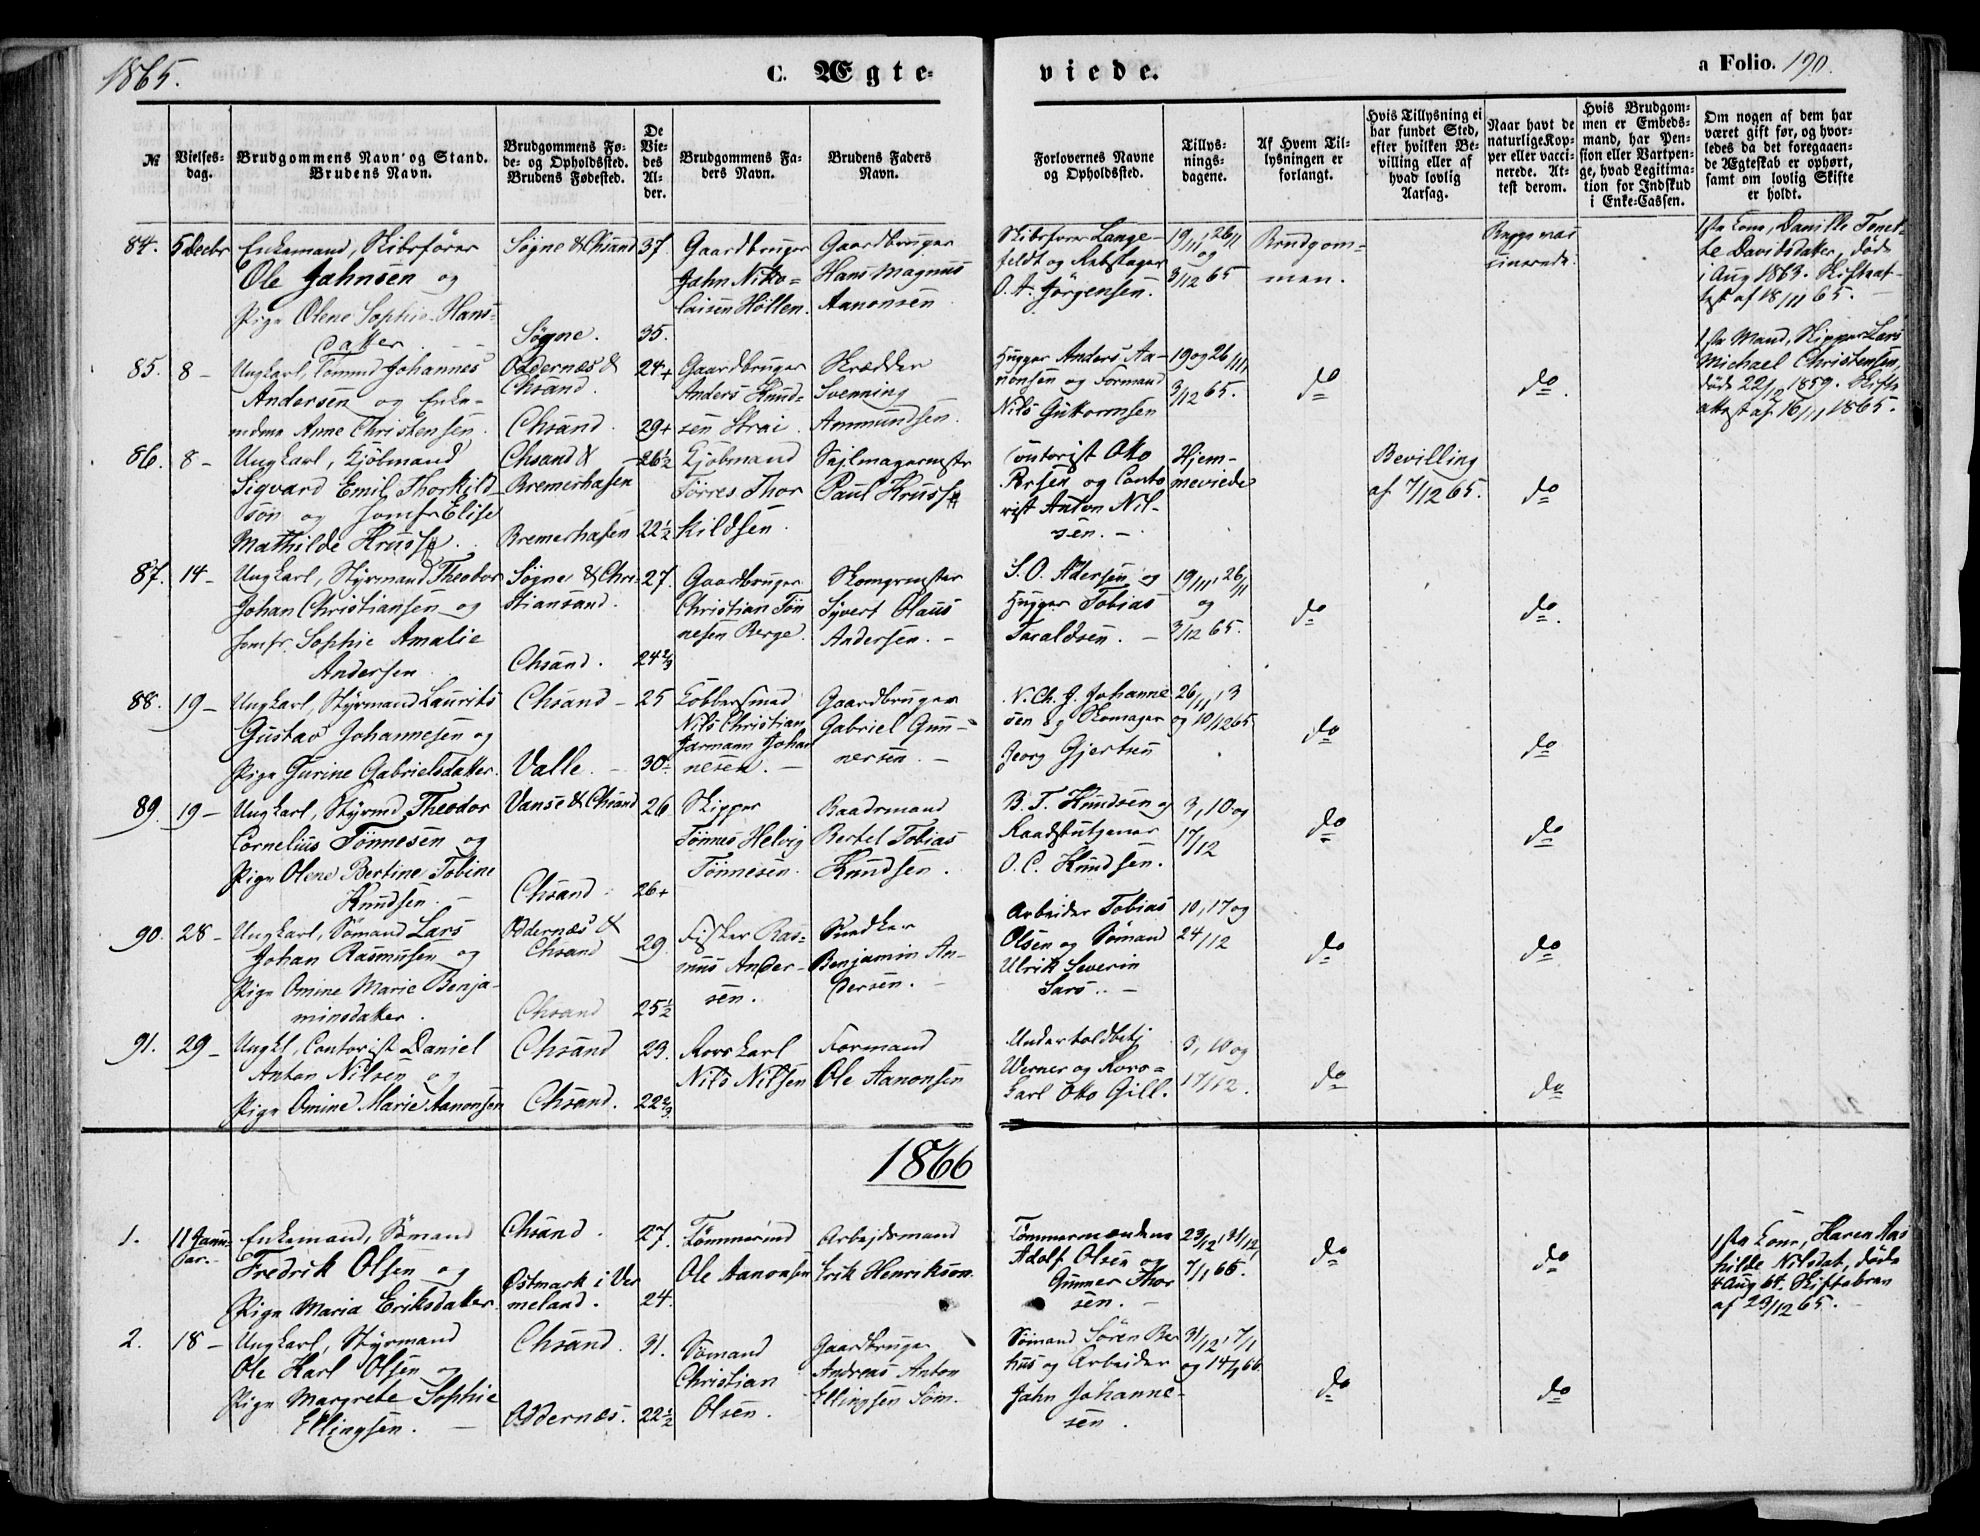 1865.
C. Ægte-
viede.
a Folio. 190.
№
Vielses-
dag.
Brudgommens Navn og Stand.
Brudens Navn.
Brudgommens Fø-
de- og Opholdssted.
Brudens Fødested.
De
Vie-
des
Al-
der.
Brudgommens Fa-
ders Navn.
Brudens Faders
Navn.
Forlovernes Navne
og Opholdssted.
Tillys-
nings-
dagene.
Af Hvem Til-
lysningen er
forlangt.
Hvis Tillysning ei
har fundet Sted,
efter hvilken Be-
villing eller af
hvad lovlig
Aarsag.
Naar havt de
naturlige Kop-
per eller vacci-
nerede. At-
test derom.
Hvis Brudgom-
men er Embeds-
mand, har Pen-
sion eller Vartpen-
ge, hvad Legitima-
tion for Indskud
i Enke-Cassen.
Om nogen af dem har
været gift før, og hvor-
ledes da det foregaaen-
de Ægteskab er ophørt,
samt om lovlig Skifte
er holdt.
84. 5 Decbr
Enkemand, Skibsfører
Ole Jahnsen og
Pige Olene Sophie Hans-
datter.
Søgne & Chsand
Søgne.
37.
35.
Gaardbruger
Jahn Niko-
laisen Höllen.
Gaardbruger
Hans Magnus
Aanonsen
Skibsfører Lange-
feldt og Rebslager
O. A. Jörgensen.
19/11, 26/11
og
3/12 65
Brudgom-
men.
1ste Kone, Danille Tonet-
te Davidsdatter, døde
i Aug 1863. Skifteat-
test af 18/11 65.
85. 8 -
Ungkarl, Tömmd Johannes
Andersen og Enke-
madme Anne Christensen.
Oddernæs &
Chsand.
Chsand.
24+
29+
Gaardbruger
Anders Knud-
sen Strai.
Skrædder
Svenning
Ammundsen.
Hugger Anders Aa-
nonsen og Formand
Nils Guttormsen
19 og 26/11
3/12 65.
do
do
1ste Mand, Skipper Lars
Michael Christensen,
døde 22/12 1859. Skifte
attest af 16/11 1865.
86. 8 -
Ungkarl, Kjöbmand
Sigvard Emil Thorkild-
son og Jomfr Elise
Mathilde Krusse.
Chsand &
Bremerhafen
Bremerhafen
26½
22½
Kjöbmand
Törres Thor
kildsen.
Sejlmagermester
Paul Krusse
Contorist Otto
Persen og Conto
rist Anton Nil-
sen.
Hjem-
meviede
Bevilling
af 7/12 65.
do
87. 14 -
Ungkarl, Styrmand Theodor
Johan Christiansen og
Jomfr. Sophie Amalie
Andersen
Søgne & Chri-
stiansand.
Chsand.
27.
24⅔
Gaardbruger
Christian Tön
nesen Berge.
Skomgrmester
Syvert Olaus
Andersen.
S. O. Andersen og
Hugger Tobias
Taraldsen.
19/11, 26/11
og
3/12 65.
do
do
88. 19 -
Ungkarl, Styrmand Laurits
Gustav Johannesen og
Pige Gurine Gabrielsdatter.
Chsand
Valle.
25
30
Kobbersmed
Nils Christian
Jarmann Johan
nesen.
Gaardbruger
Gabriel Gun-
nersen.
N. Ch. J. Johanne
sen og Skomager
Georg Gjertsen
26/11, 3
og 10/12 65
do
do
89. 19 -
Ungkarl, Styrmd Theodor
Cornelius Tönnesen og
Pige Olene Bertine Tobine
Knudsen.
Vanse & Chsand
Chsand
26
26+
Skipper
Tönnes Helvig
Tönnesen
Baadsmand
Bertel Tobias
Knudsen.
B. T. Knudsen og
O. C. Knudsen.
3, 10 og
17/12
do
do
90. 28 -
Ungkarl, Sømand Lars
Johan Rasmusen og
Pige Omine Marie Benja-
minsdatter.
Oddernæs &
Chsand
Chsand
29
25½
Fisker Ras-
mus Ander-
sen.
Snedker
Benjamin An-
dersen.
Arbeider Tobias
Olsen og Sømand
Ulrik Severin
Lars.
10, 17 og
24/12
do
do
91. 29 -
Ungkl, Contorist Daniel
Anton Nilsen og
Pige Omine Marie Aanonsen
Chsand
Chsand.
23.
22⅔
Rorskarl
Nils Nilsen
Formand
Ole Aanonsen
Underholdbetj
Werner og Rors-
karl Otto Gill.
3, 10 og
17/12.
do
do
1866
1. 11 Janu-
ar.
Enkemand, Sømand
Fredrik Olsen og
Pige Maria Eriksdatter
Chsand.
Østmark i Ver
meland.
27.
24.
Tömmermd
Ole Aanonsen
Arbejdsmand
Erik Henrikson
Tømmermændene
Adolf Olsen og
Gunner Thor
sen.
23/12, 31/12,
7/1 66.
do
do
1ste Kone, Karen Aas
hilde Nilsdat, døde
4 Aug 64. Skiftebrev
af 23/12 65.
2. 18 -
Ungkarl, Styrmand
Ole Karl Olsen og
Pige Margrete Sophie
Ellingsen.
Chsand.
Oddernæs.
31.
22½
Sömand
Christian
Olsen.
Gaardbruger
Andreas Anton
Ellingsen Søm.
Sømand Sören Ber
hus og Arbeider
Jahn Johanne-
sen.
31/12, 7/1
og 14/1 66
do
do